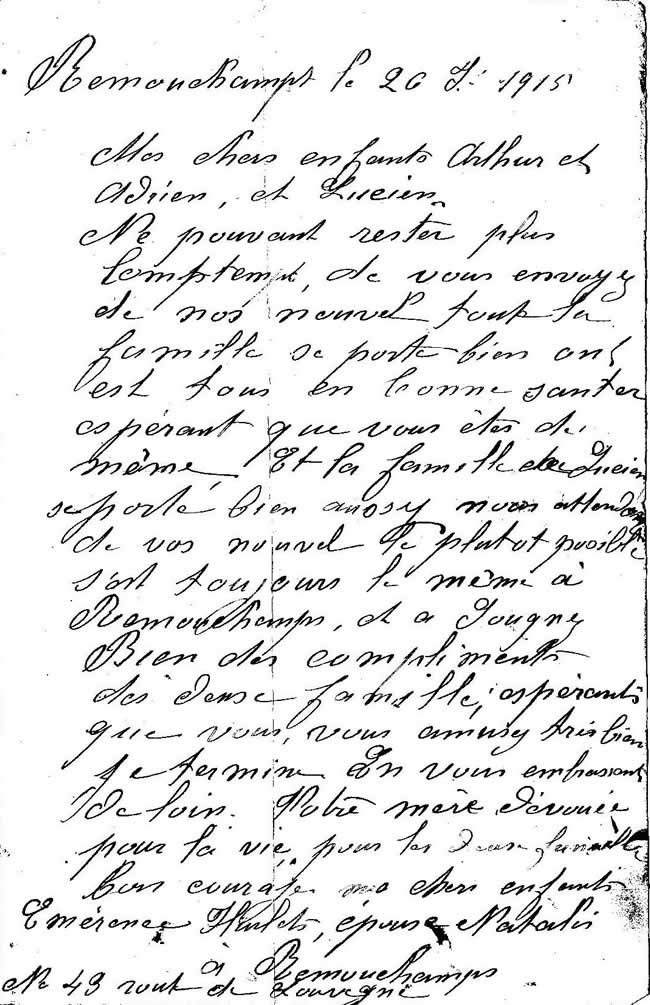 Remouchampt le 26 J. 1915
Mes chers enfants Arthur et
Adrien, et Lucien
Ne pouvant rester plus
lomptempt, de vous envoyez
de nos nouvel tout la
famille se porte bien on
est tous en bonne santer
espérant que vous êtes de
même Et la famille de Lucien
se porte bien aussy nous attendons
de vos nouvel le plutot posible
s'ait toujours le même à
Remouchamps, et a Jougne
Bien des compliments
des deuse famille, espérants
que vous, vous amusy très bien
Je termine En vous embrassent
de loin. Votre mère dévouée
pour la vie, pour les deuse famille
bon courage mes chers enfants
Emérence Hulets, épouse Natalis
à Remouchamps
No 49 rout de Louvegné